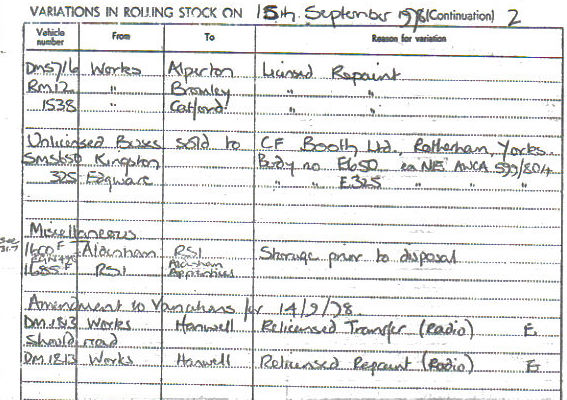 VARIATIONS IN ROLLING STOCK ON 15th September 1978 (Continuation) 2
Vehicle number From To Reason for variation
DM57/6 Works Alperton Licensed Repaint
RM12 " Bromley " "
1538 " Catford " "
Unlicensed Buses sold to CF Booth Ltd., Rotherham, Yorks
SMS650 Kingston Body no E650
325 Edgware " " E325 " " "
Miscellaneous
1600F Aldenham RSI Storage prior to disposal
1685F RSI Aldenham Apprentices
Amendment to Variations for 14/9/78
DM1813 Works Hanwell Relicensed Transfer (Radio) E
Should read
DM1813 Works Hanwell Relicensed Repaint (Radio) E